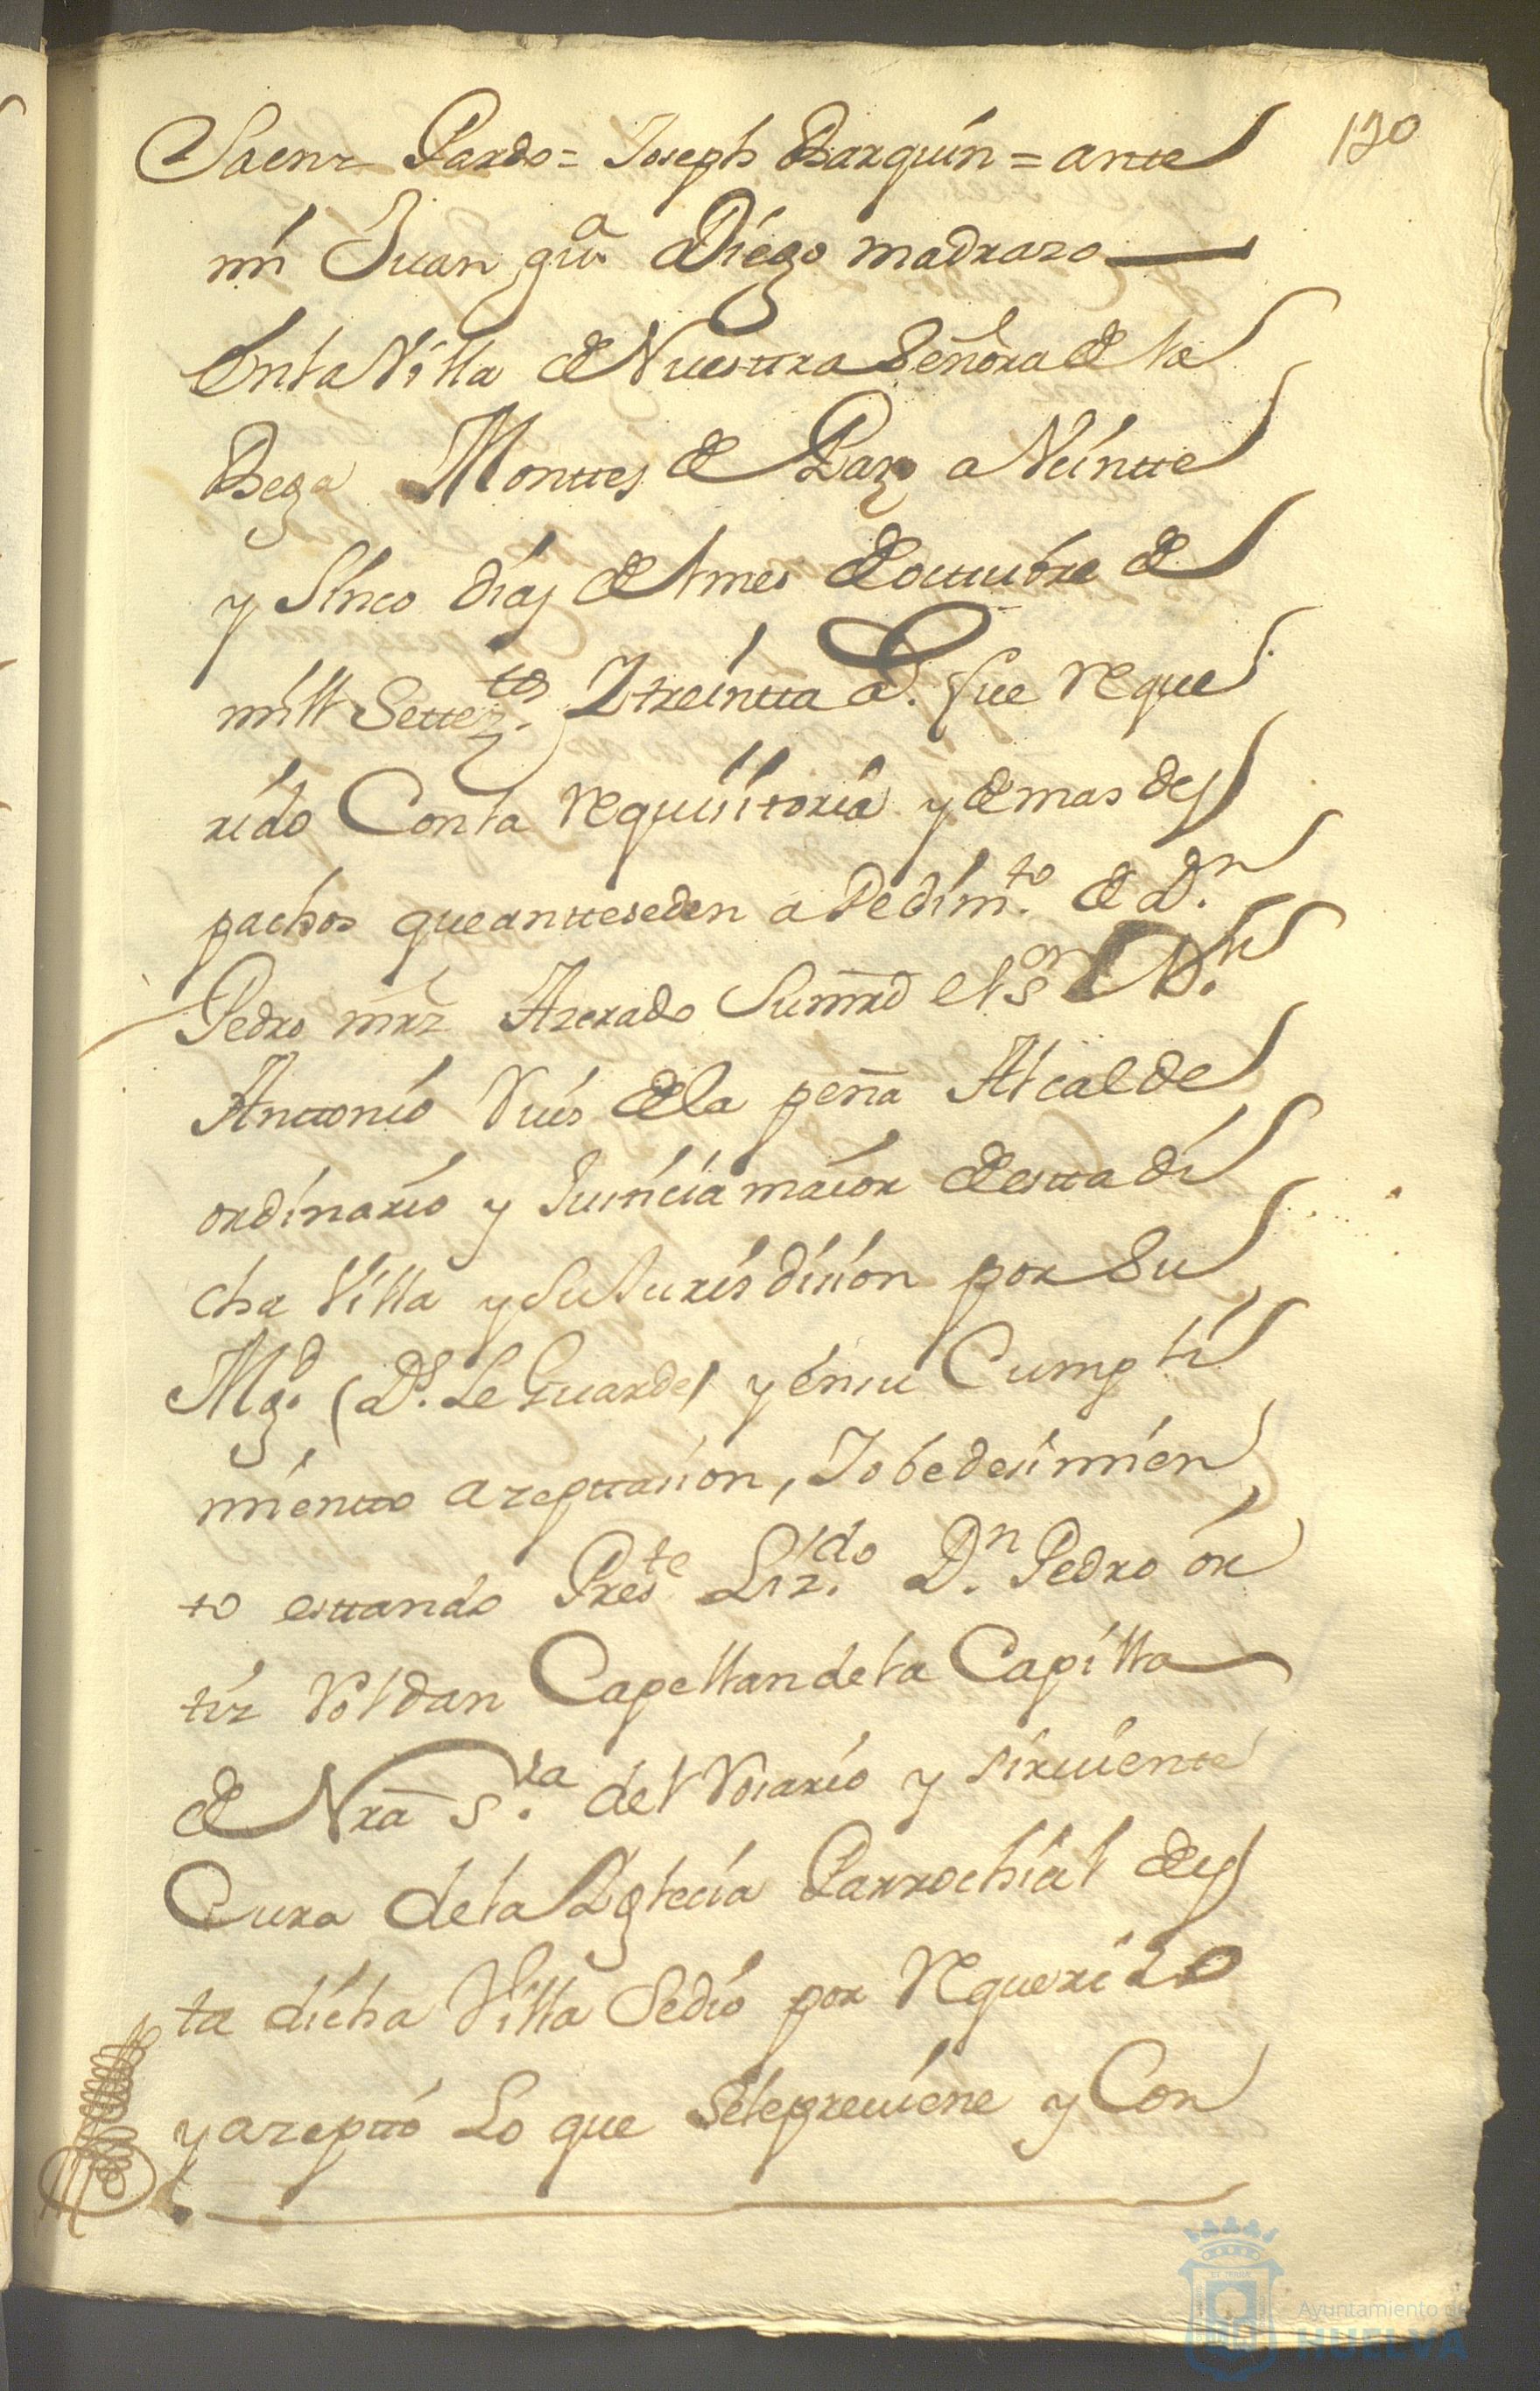 130
Saenz Pardo = Joseph Barquin = antte
mi Juan gu.ª Diego madrazo
En la Villa de Nuesttra Señora de la
Bega Monttes de Paz a Veintte
y Sinco dias del mes de octtubre de
mill Settez.tos Y treintta a.s fue reque
rido Con la requisitoria y demas des
pachos que antteseden a Pedim.to de D.n
Pedro mrz Azerado Su mrd el s.or D.n
Anttonio Ruis de la peña Alcalde
ordinario y Justicia maior de estta di
cha Villa y su Jurisdision por Su
Mg.d (D.s Le Guarde) y en su Cumpli
mientto azepttasion, Y obedesimien
to esttando Pres.te Liz.do D.n Pedro or
tiz Roldan Capellan de la Capilla
de Nra S.ra del Rosario y sirvientte
Cura de la Yglecia Parrochial des
ta dicha Villa Se dio por Requerido
y azeptto Lo que Se le previene y Con
Ayuntamiento de
HUELVA